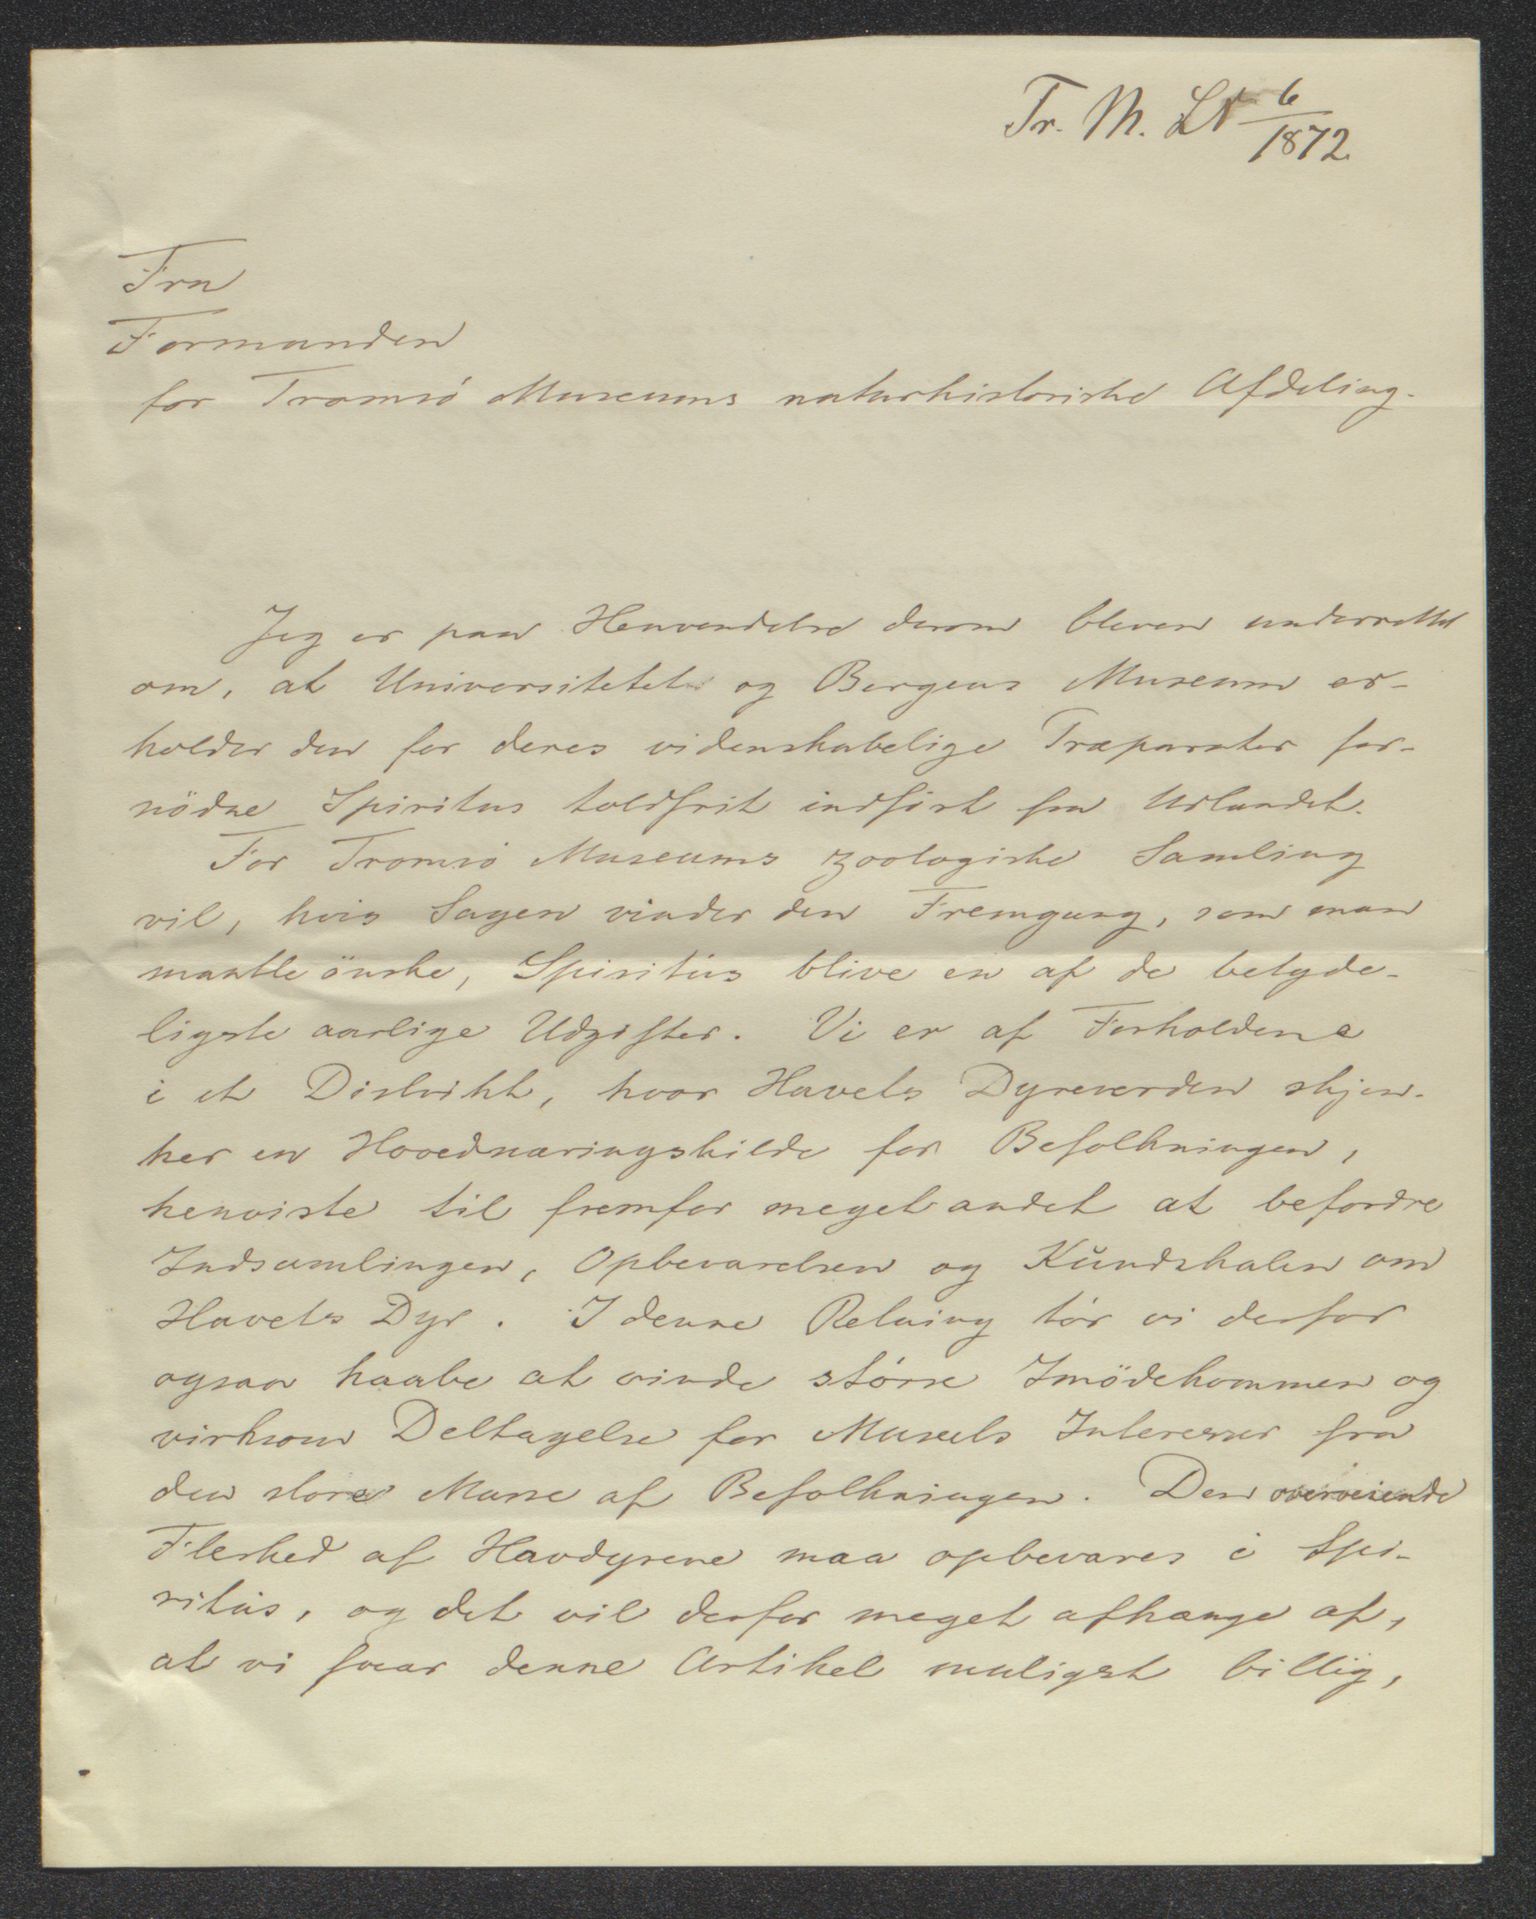 Tr. M. LN 6/1872
Fra
Formanden
for Tromsö Museums naturhistoriske Afdeling.
Jeg er paa Henvendelse derom bleven underrettet
om, at Universitetet og Bergens Museum er-
holder den for deres videnskabelige Præparater for-
nödne Spiritus toldfrit indfört fra Udlandet.
For Tromsö Museums zoologiske Samling
vil, hvis Sagen vinder den Fremgang, som man
maatte önske, Spiritus blive en af de betyde-
ligste aarlige Udgifter. Vi er af Forholdene
i et Distrikt, hvor Havets Dyreverden skjen-
ker en Hovednæringskilde for Befolkningen,
henviste til fremfor meget andet at befordre
Indsamlingen, Opbevarelsen og Kundskaben om
Havets Dyr. I denne Retning tör vi derfor
ogsaa haabe at vinde större Imödekommen og
virksom Deltagelse for Museets Interesser fra
den store Masse af Befolkningen. Den overveiende
Flerhed af Havdyrene maa opbevares i Spi-
ritus, og det vil derfor meget afhænge af,
at vi faar denne Artikel muligst billig,